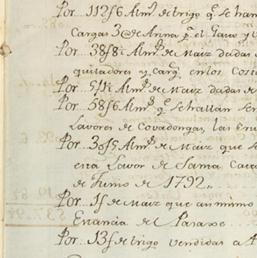 Por 112f6 Almᵗ de trigo qᵉ se han
Cargas 3@ de Arina pᵃ el Gavo y
Por 38f8½ Almᵗ de Maiz dadas a
quitadores y Carg. en los Cost
Por 5f1½ Almᵗ de maiz dadas de
Por 58f6 Almᵗ qᵉ se hallan en
Lavores de Covadonga, las
Por 30f5 Almᵗ de Maiz que se
esta Lavor de Santa Cata
de Junio de 1792.
Por 1f de Maiz que asi mismo
Estancia del Paraxe
Por 13f de trigo vendidas a